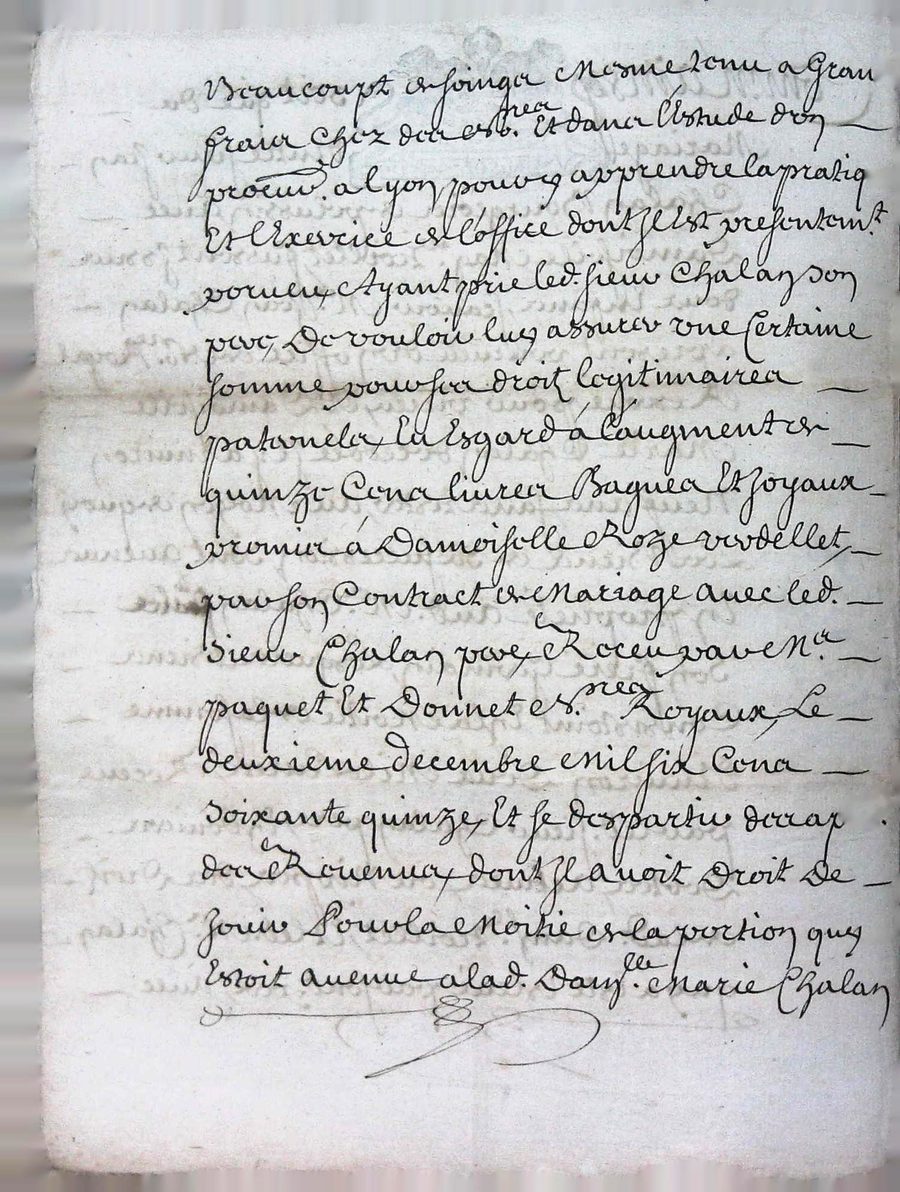 Beaucoupt de soings Mesme tenu a Gran
fraix Chez des no.res Et dans l'Estude d'un
procur. a lyon pour y apprendre la pratiq
Et l'Exercice de l'office dont Il Est presentem.t
porveu, Ayant prie led. sieur Chalan son
pere, De vouloir luy assurer une Certaine
somme pour ses droit legitimaires
paternels, Eu Esgard à l'augment de
quinze Cens livres Bagues Et Joyaux
promis à Damoiselle Roze verdellet,
par son Contract de Mariage avec led.
Sieur Chalan pere, Receu par M.e
paquet Et Donnet no.res Royaux, Le
deuxieme Decembre Mil six Cens
Soixante quinze, Et se despartir des ap
des Revenus, dont Il avoit Droit De
Jouir Pour la Moitie de la portion quy
Estoit avenue a lad. Dam.lle Marie Chalan